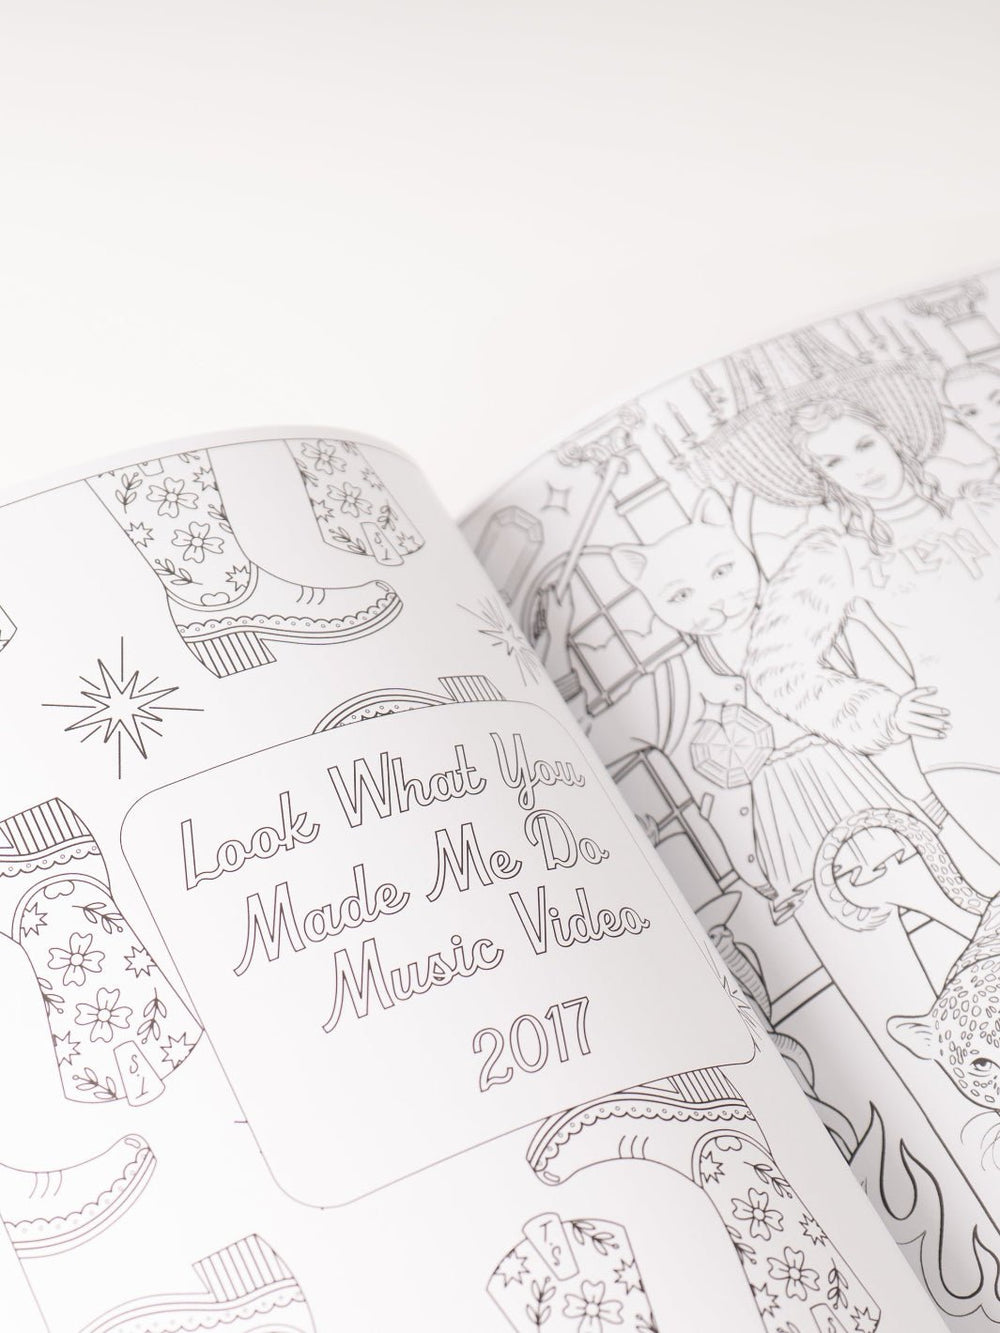 Look What You
Made Me Do
Music Video
2017
rep
TS
TS
TS